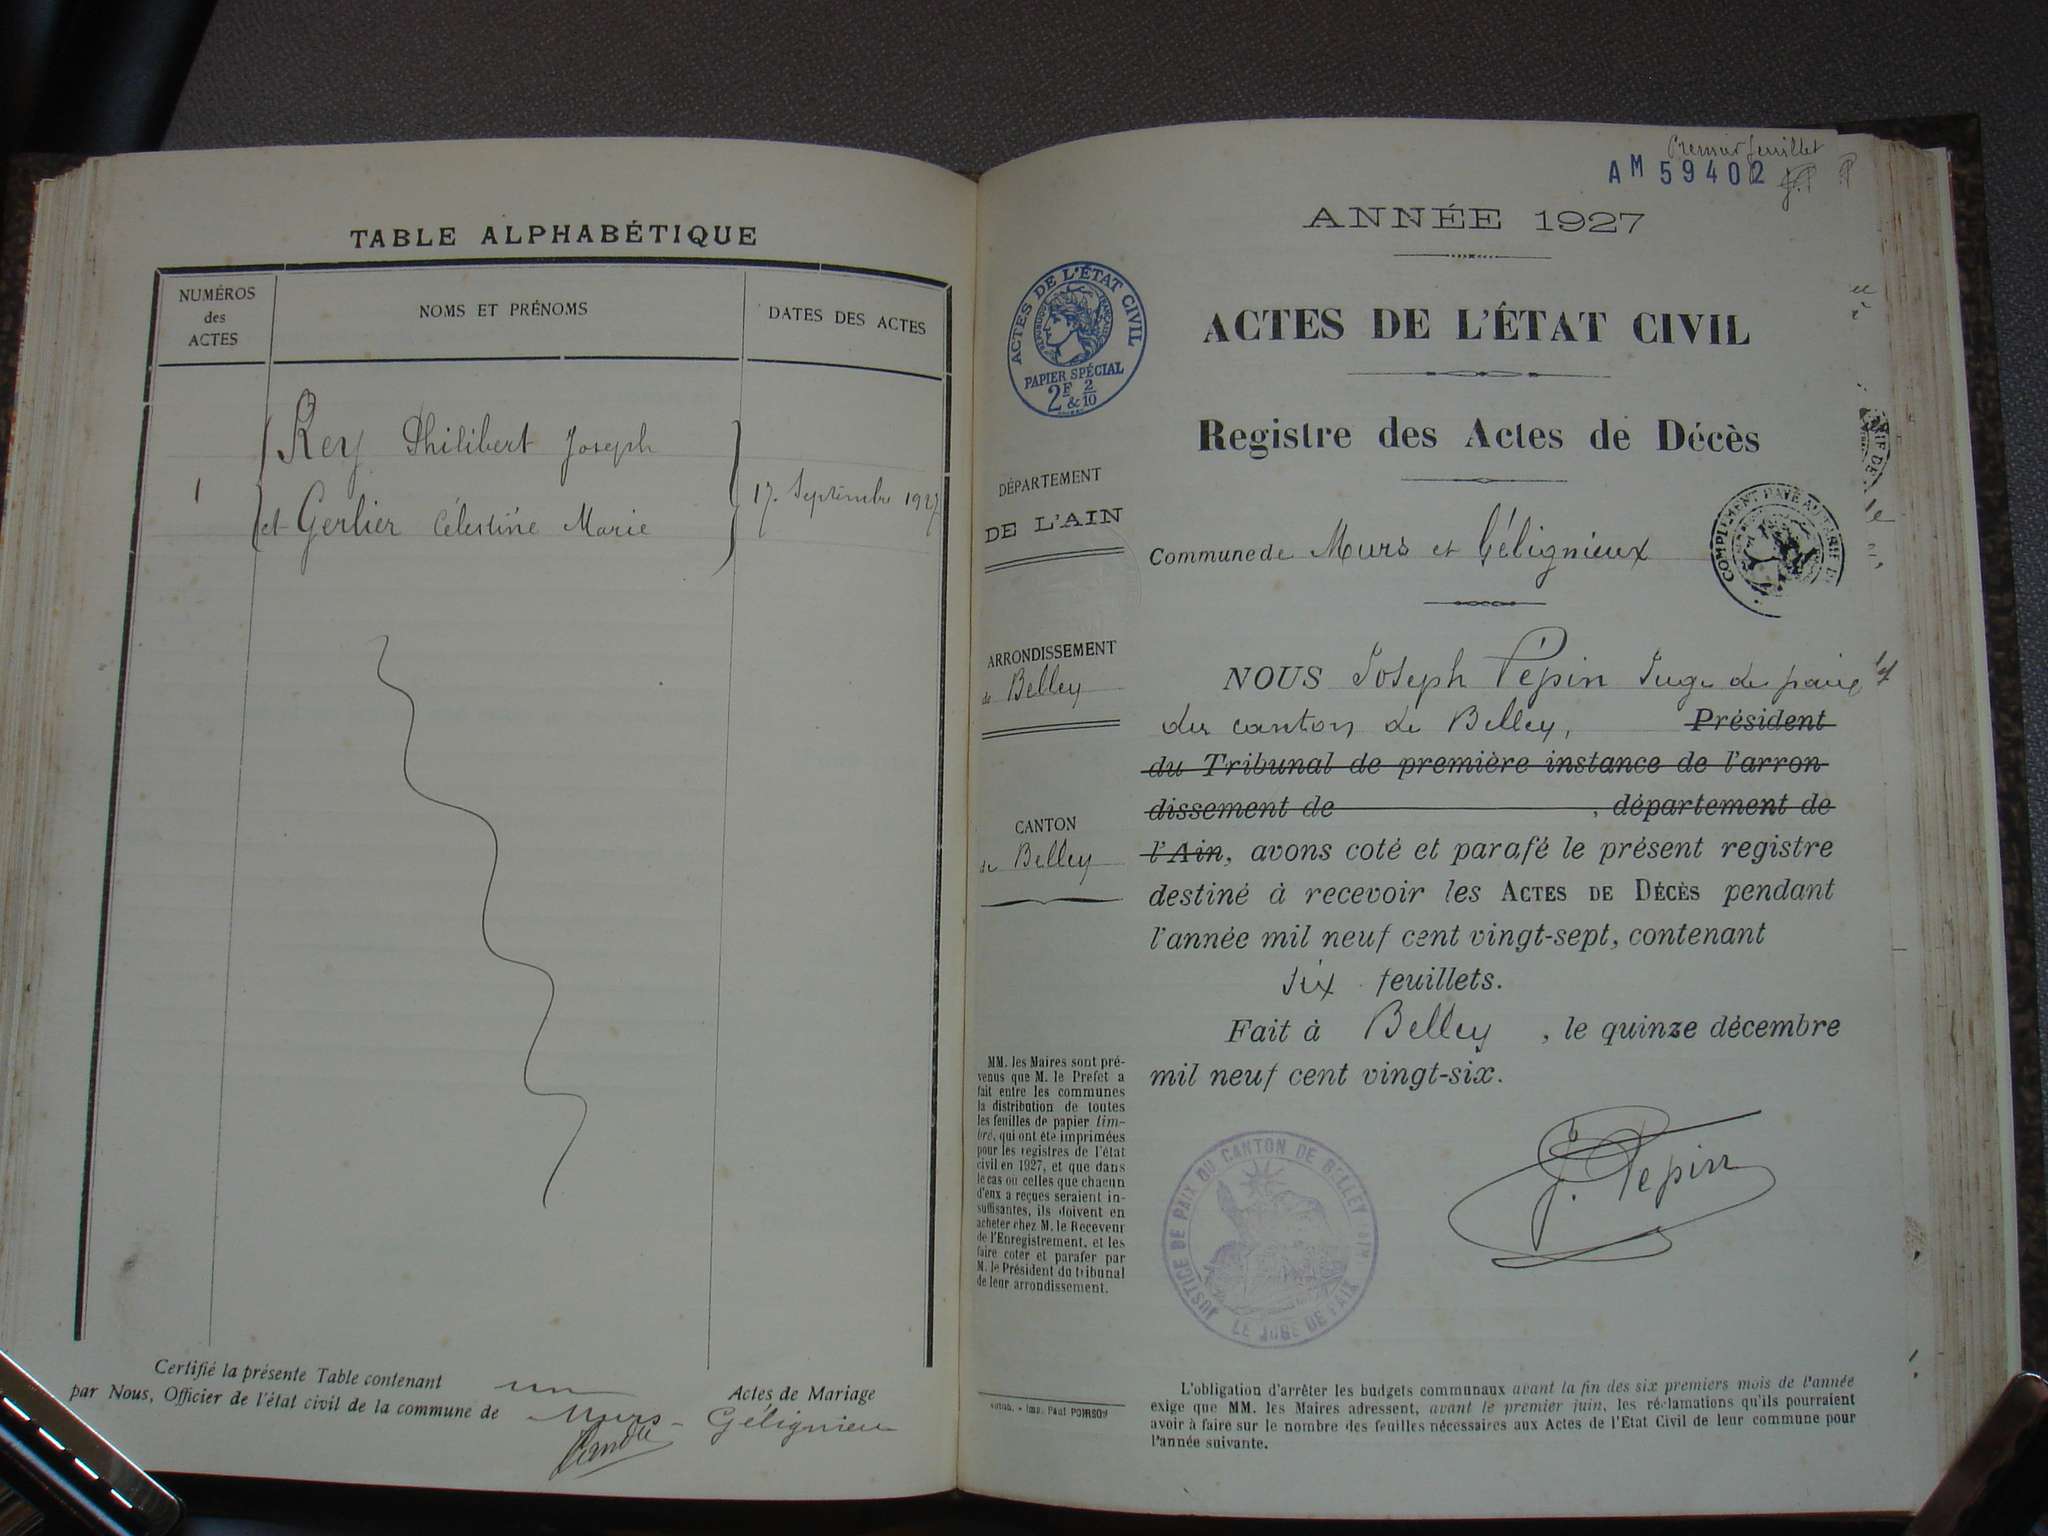 TABLE ALPHABÉTIQUE
NUMÉROS
des
ACTES
NOMS ET PRÉNOMS
DATES DES ACTES
Rey Philibert Joseph
1
17. Septembre 1927
et Gerlier Célestine Marie
Certifié la présente Table contenant un Actes de Mariage
par Nous, Officier de l'état civil de la commune de Murs - Gélignieu
Premier feuillet
AM 59402
ANNÉE 1927
ACTES DE L'ÉTAT CIVIL
RÉPUBLIQUE FRANÇAISE
PAPIER SPÉCIAL
2F & 2/10
ACTES DE L'ÉTAT CIVIL
Registre des Actes de Décès
DÉPARTEMENT
DE L'AIN
Commune de Murs et Gélignieux
COMPLEMENT PAYÉ AU TARIF D
ARRONDISSEMENT
de Belley
CANTON
de Belley
NOUS Joseph Pépin Juge de paix
du canton de Belley, Président
du Tribunal de première instance de l'arron
dissement de , département de
l'Ain, avons coté et parafé le présent registre
destiné à recevoir les ACTES DE DÉCÈS pendant
l'année mil neuf cent vingt-sept, contenant
six feuillets.
Fait à Belley, le quinze décembre
mil neuf cent vingt-six.
J. Pepin
JUSTICE DE PAIX DU CANTON DE BELLEY (AIN)
LE JUGE DE PAIX
MM. les Maires sont pré-
venus que M. le Prefet a
fait entre les communes
la distribution de toutes
les feuilles de papier tim-
bré, qui ont été imprimées
pour les registres de l'état
civil en 1927, et que dans
le cas ou celles que chacun
d'eux a reçues seraient in-
suffisantes, ils doivent en
acheter chez M. le Receveur
de l'Enregistrement, et les
faire coter et parafer par
M. le Président du tribunal
de leur arrondissement.
Imp. Paul POIRSON
L'obligation d'arrêter les budgets communaux avant la fin des six premiers mois de l'année
exige que MM. les Maires adressent, avant le premier juin, les réclamations qu'ils pourraient
avoir à faire sur le nombre des feuilles nécessaires aux Actes de l'Etat Civil de leur commune pour
l'année suivante.